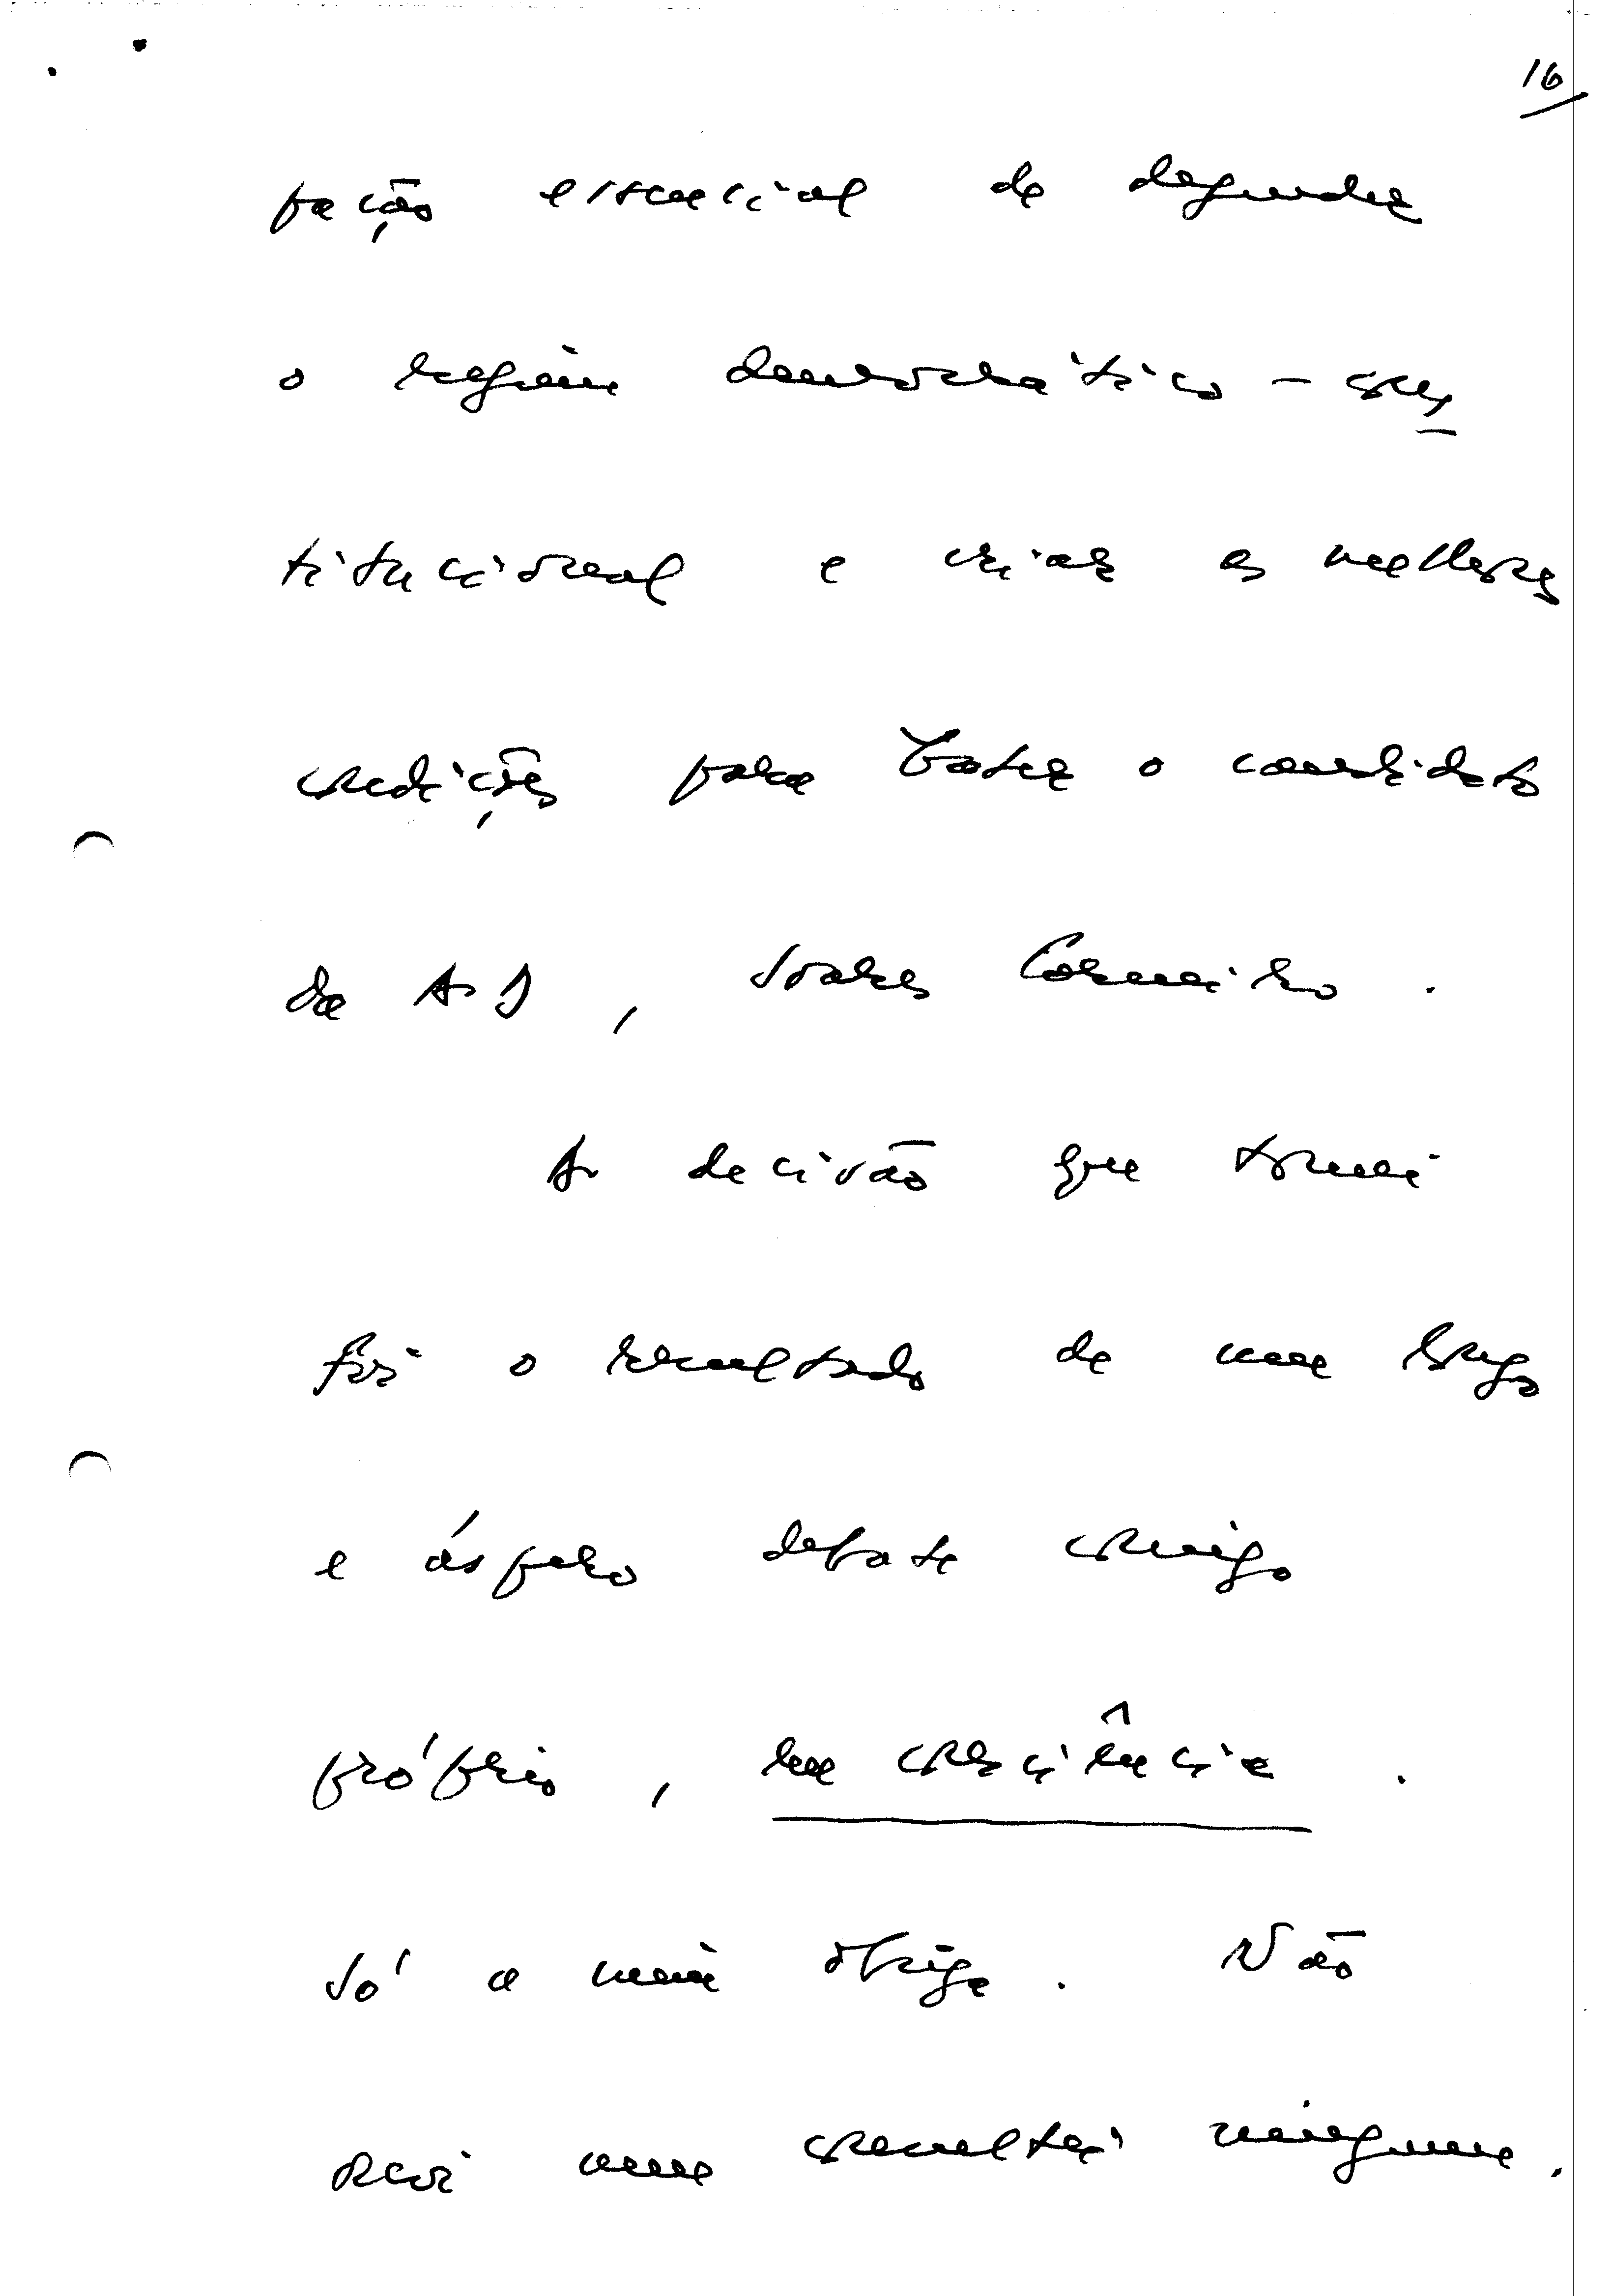 16
pação essencial de defender
o regime democrático-cons
titucional e criar as melhores
condições para bater o candidato
da AD, Soares Carneiro.
A decisão que tomei
foi o resultado de um longo
e áspero debate comigo
próprio, em consciência.
Só a mim obriga. Não
ouvi nem consultei ninguém.